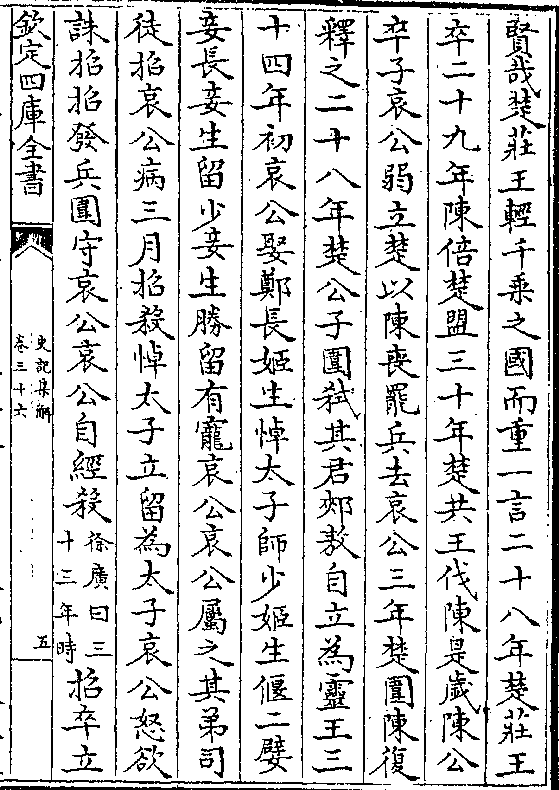 賢哉楚莊王輕千乘之國而重一言二十八年楚莊王
卒二十九年陳倍楚盟三十年楚共王伐陳是歲陳公
卒子哀公弱立楚以陳喪罷兵去哀公三年楚圍陳復
釋之二十八年楚公子圍弑其君郟敖自立為靈王三
十四年初哀公娶鄭長姬生悼太子師少姬生偃二嬖
妾長妾生留少妾生勝留有寵哀公哀公屬之其弟司
徒招哀公病三月招殺悼太子立留為太子哀公怒欲
誅招招發兵圍守哀公哀公自經殺徐廣曰三十三年時招卒立
欽定四庫全書
史記集解
卷三十六
五